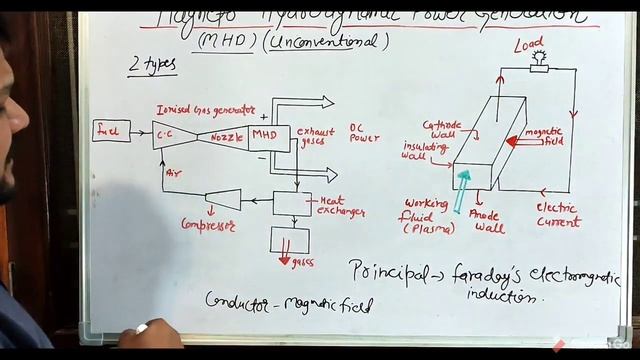 Magneto Hydrodynamic Power Generation
(MHD) (Unconventional)
2 types
Ionised Gas generator
fuel
C.C
Nozzle
+
MHD
-
exhaust
gases
DC
Power
Air
Compressor
Heat
exchanger
gases
Load
Cathode
wall
insulating
wall
magnetic
field
Working
fluid
(Plasma)
Anode
wall
electric
Current
Principal → faraday's electromagnetic
induction.
Conductor - Magnetic field